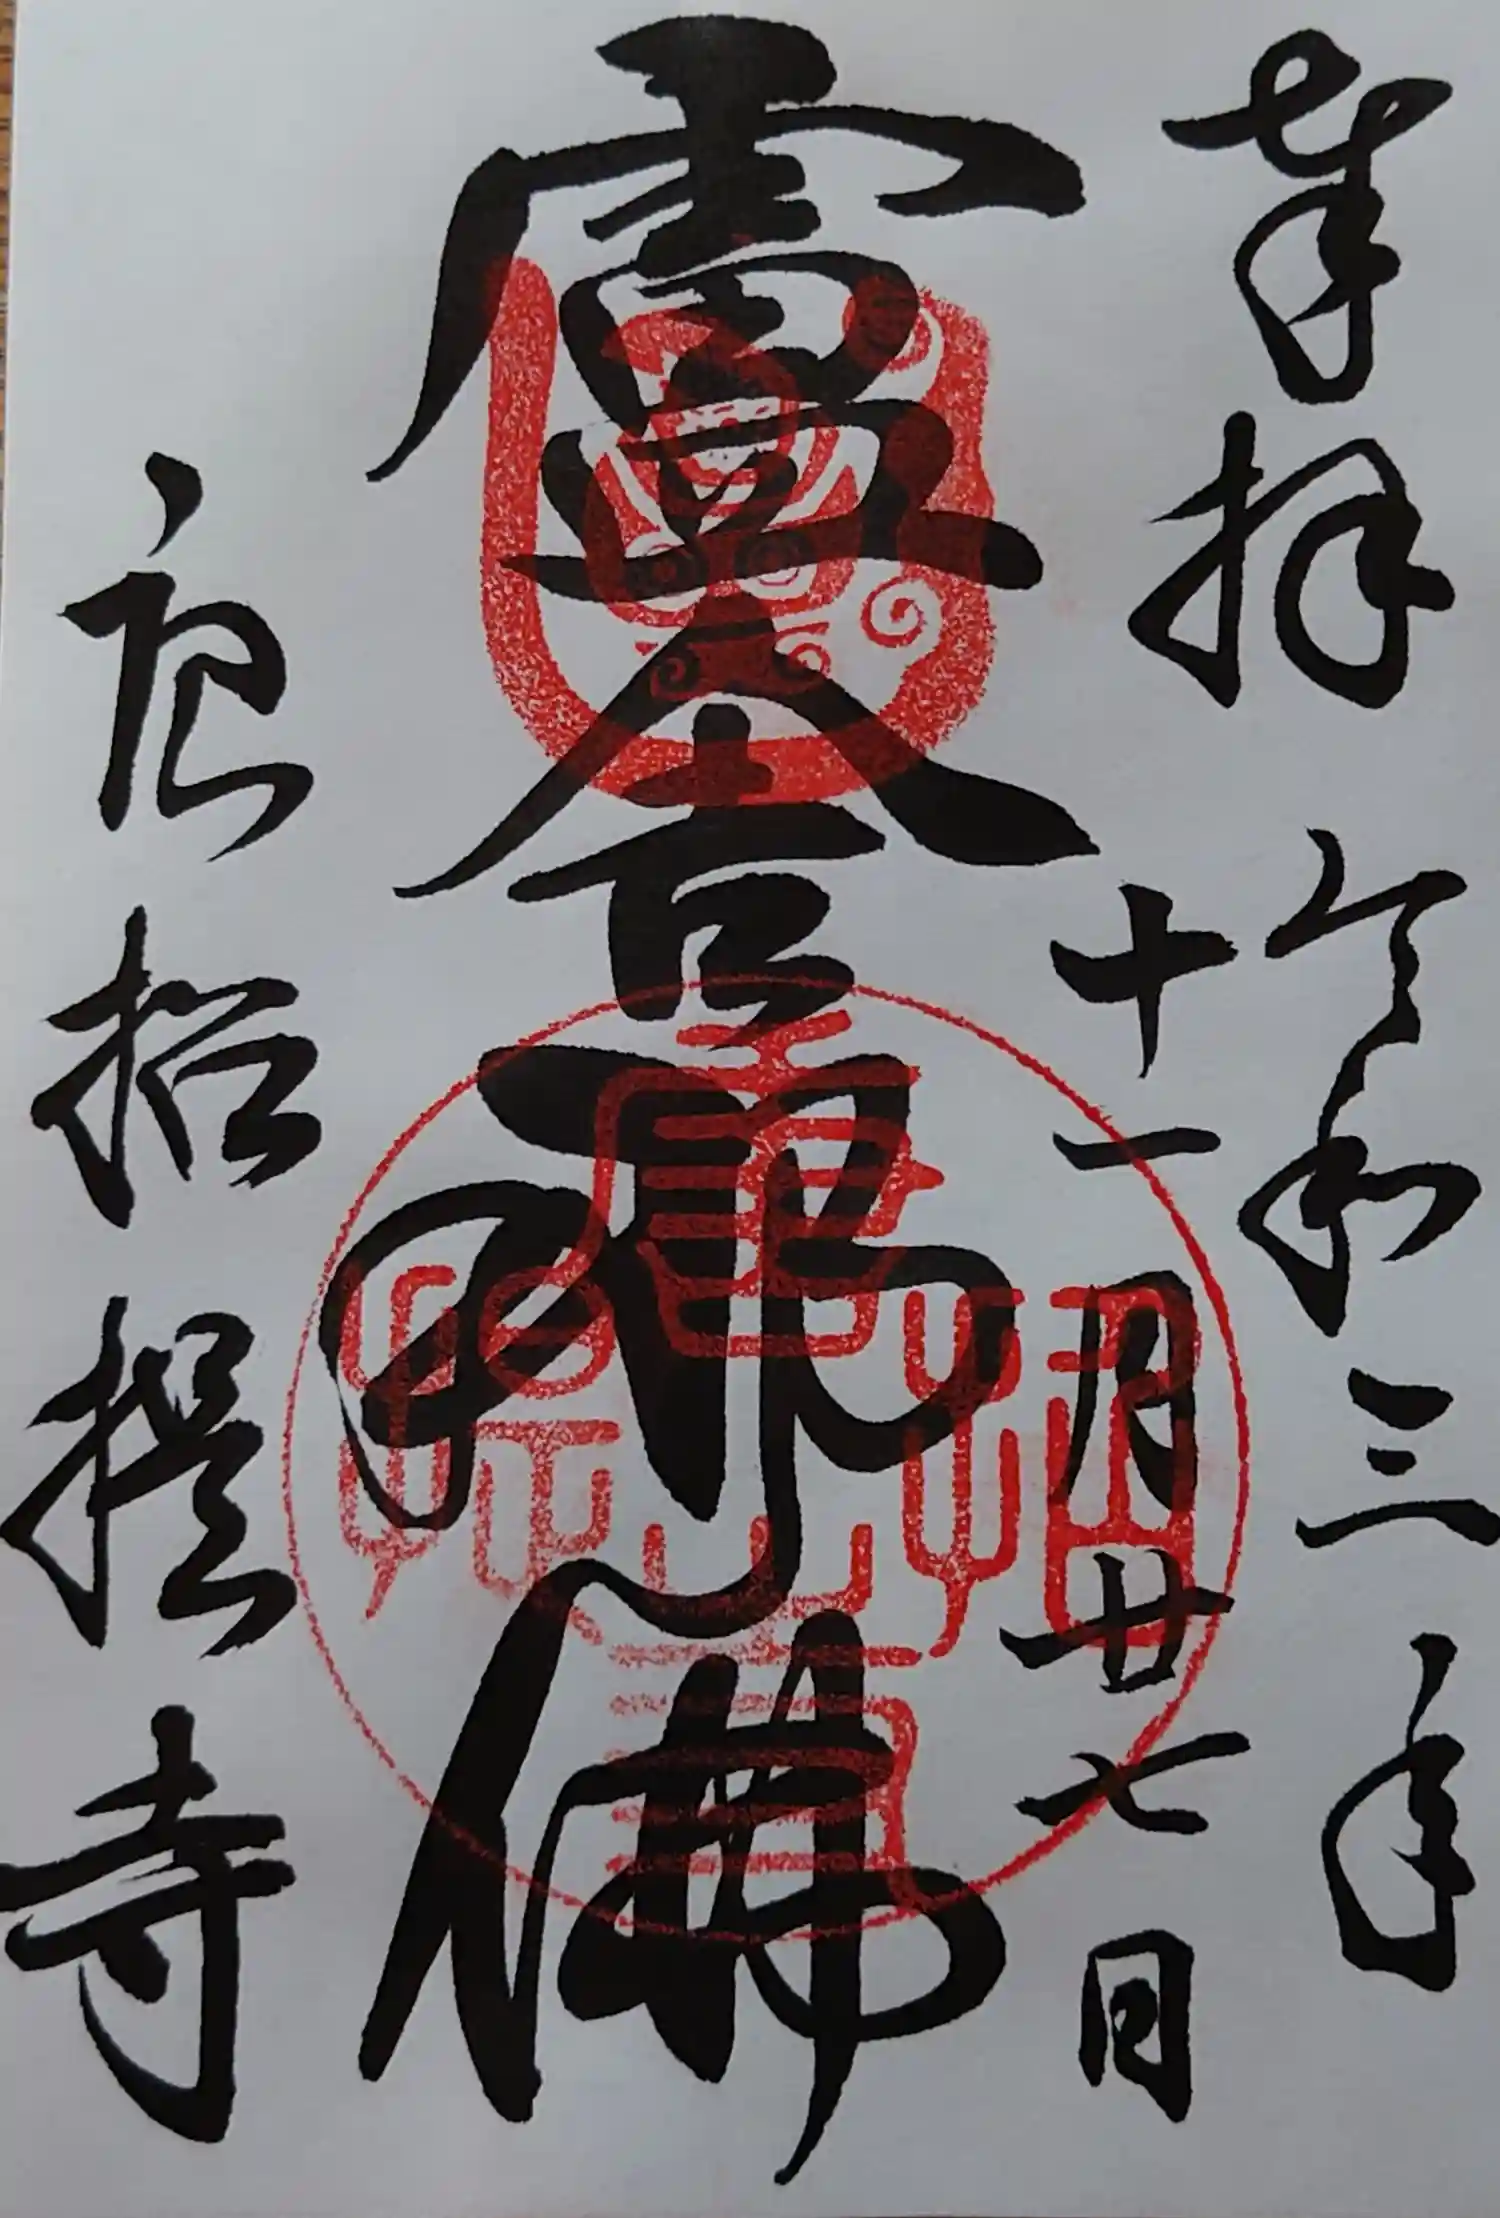 奉拝 令和三年
十一月廿七日
盧舎那佛
唐招提寺